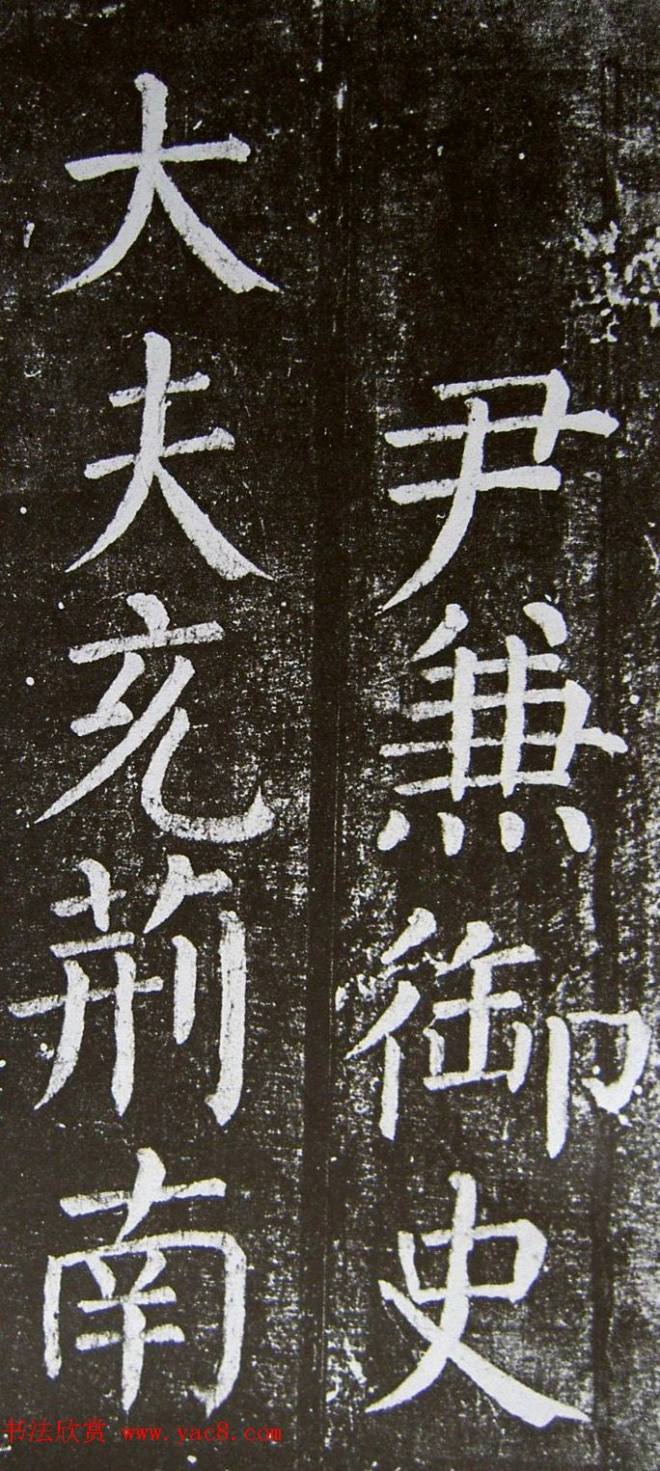 尹兼御史
大夫充荆南
书法欣赏 www.yac8.com